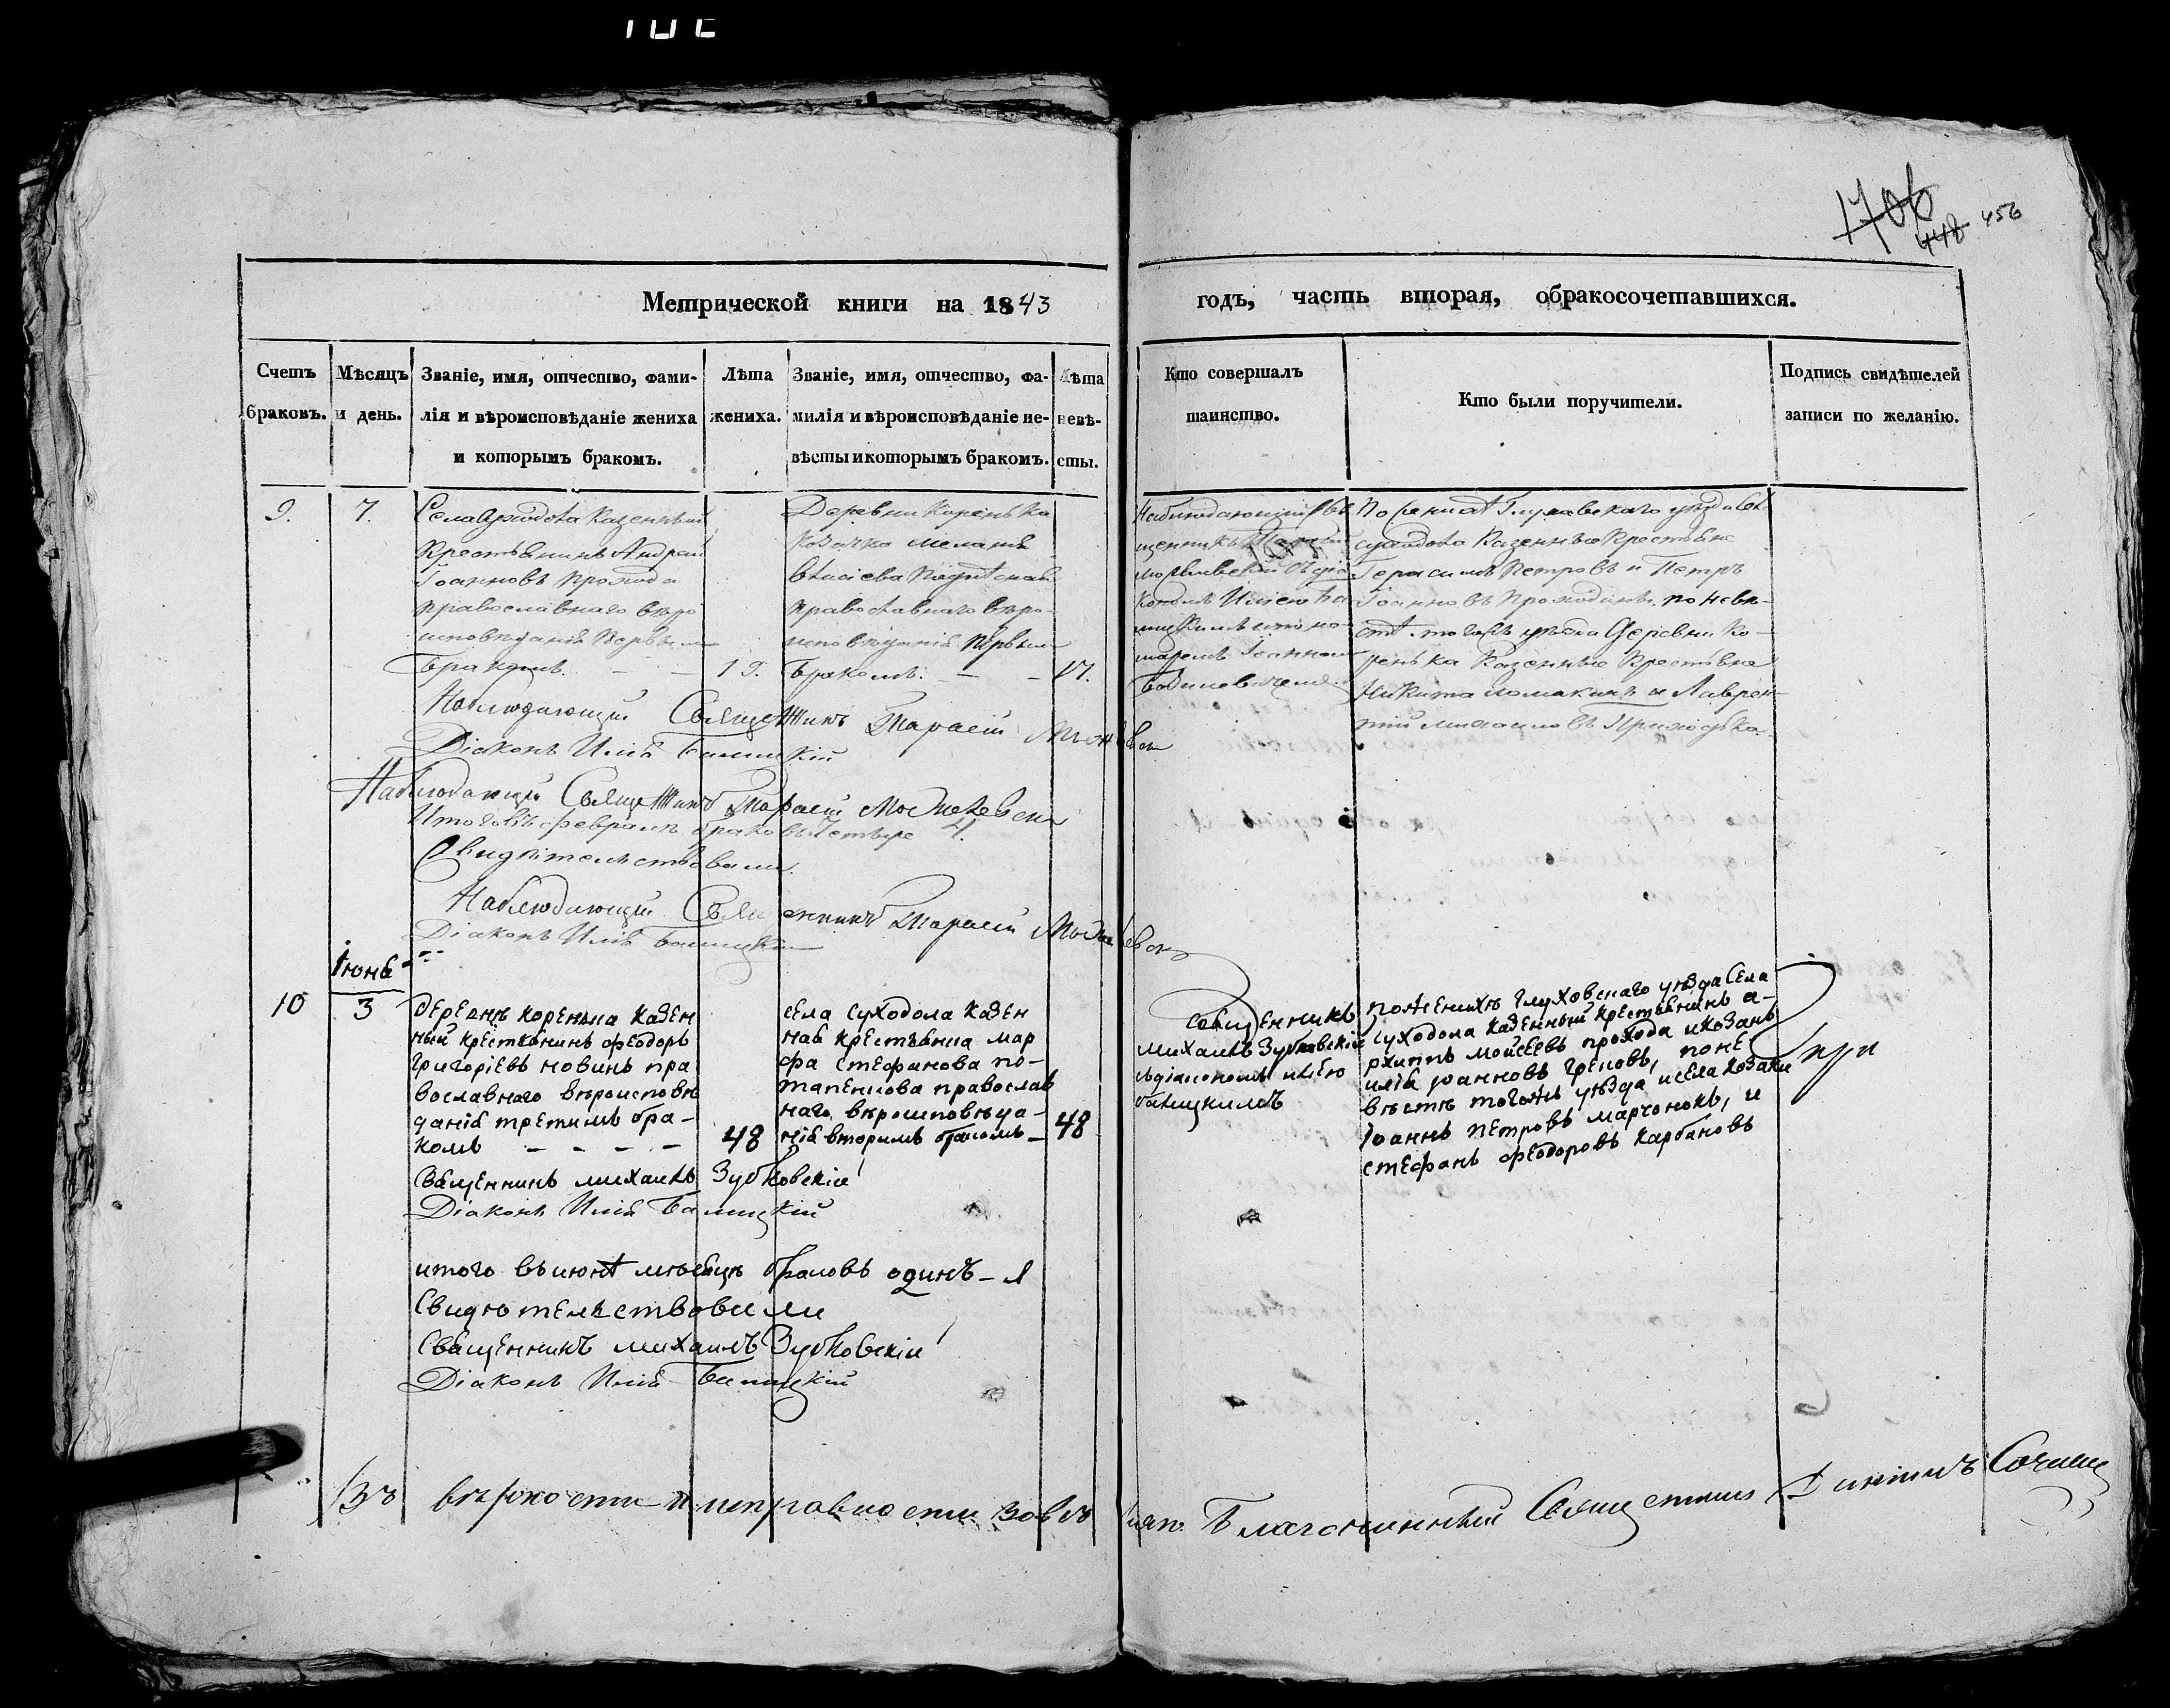 1706
448 456
Метрической книги на 1843
годъ, часть вторая, обракосочетавшихся.
Счетъ браковъ.
Мѣсяцъ и день.
Званіе, имя, отчество, фами-
лія и вѣроисповѣданіе жениха
и которымъ бракомъ.
Лѣта
жениха.
Званіе, имя, отчество, фа-
милія и вѣроисповѣданіе не-
вѣсты и которымъ бракомъ.
Лѣта
невѣ-
сты.
Кто совершалъ
таинство.
Кто были поручители.
Подпись свидѣтелей
записи по желанію.
9.
7.
Села Суходола Казенный
Крестьянинъ Андрей
Іоанновъ Прохода
православнаго вѣро
исповѣданія Первым
бракомъ. — — 19.
Деревни Коренька
Козачка Меланія
православнаго вѣро-
исповѣданія первым
бракомъ. — — 17.
Наблюдающій Свя
щенникъ Тарасій
съ діа
кономъ Иліею Ба
лицкимъ и по но-
маремъ Іоанном
По женихѣ Глуховскаго уѣзда Села
Суходола Казенные Крестьяне
Герасимъ Петровъ и Петръ
Іоанновъ Проходины. по невѣ-
стѣ. тогожъ уѣзда Деревни Ко-
ренька Казенные Крестьяне
Никита и Лаврен-
тій
Наблюдающій Священникъ Тарасій
Діаконъ Илія Балицкій
Наблюдающій Священникъ Тарасій
Итого въ февралѣ браковъ Четыре 4.
Свидѣтельствовали.
Наблюдающій Священникъ Тарасій
Діаконъ Илія Балицкій
Іюня
10
3
деревнѣ Коренька Казен
ный Крестьянинъ Феодоръ
Григоріевъ новинъ пра
вославнаго вѣроисповѣ
данія третимъ бра-
комъ — — — — 48
села Суходола Казен
ная Крестьянка Мар
фа Стефанова по-
тапенкова православ
наго, вѣроисповѣда-
нія вторимъ бракомъ — 48
Священникъ
михаилъ Зубковскій
съ діакономъ иліею
балицкимъ
по женихѣ Глуховскаго уѣзда Села
Суходола Казенный Крестьянинъ а-
рхиппъ мойсеевъ прохода и Козакъ
илія іоанновъ Грековъ, поне
вѣстѣ тогожъ уѣзда и села Козаки
Іоаннъ петровъ марченокъ, и
стефанъ феодоровъ Карбановъ
Священникъ михаилъ Зубковскій
Діаконъ Илія Балицкій
итого въ іюнѣ мѣсяцѣ браковъ одинъ — 1
Свидѣтельствовали
Священникъ михаилъ Зубковскій
Діаконъ Илія Балицкій
Въ вѣрности и исправности
Благочинный Священникъ